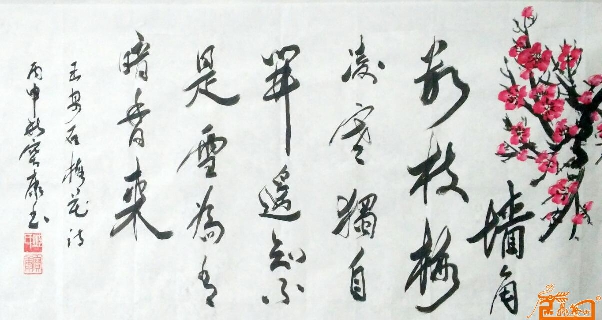 墙角
数枝梅
凌寒獨自
開遥知不
是雪為有
暗香来
王安石梅花诗
丙申